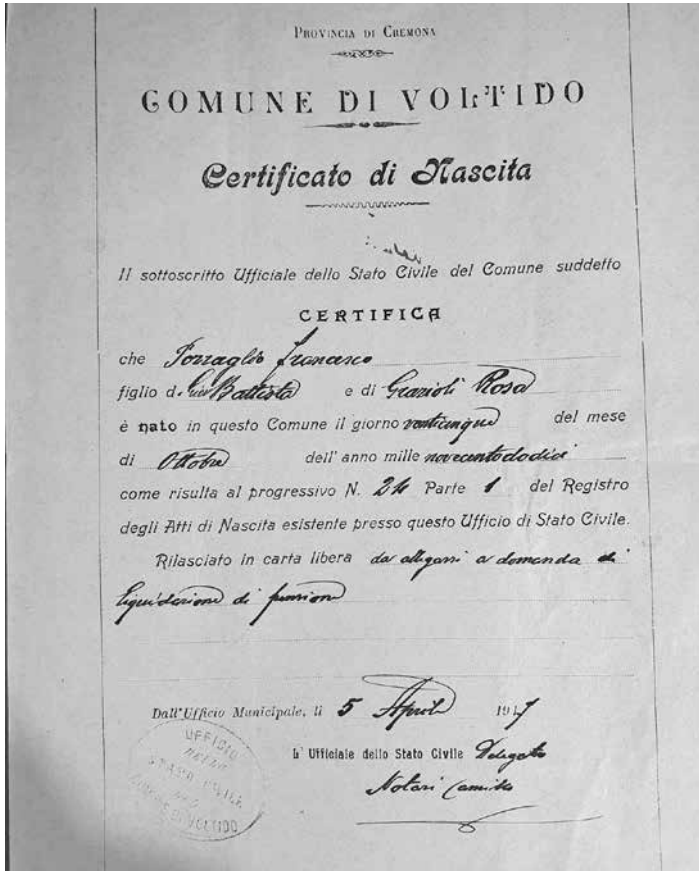 PROVINCIA DI CREMONA
COMUNE DI VOLTIDO
Certificato di Nascita
Il sottoscritto Ufficiale dello Stato Civile del Comune suddetto
CERTIFICA
che Torraglio Francesco
figlio d. Gio Battista e di Grazioli Rosa
è nato in questo Comune il giorno venticinque del mese
di Ottobre dell'anno mille novecentododici
come risulta al progressivo N. 24 Parte 1 del Registro
degli Atti di Nascita esistente presso questo Ufficio di Stato Civile.
Rilasciato in carta libera da allegarsi a domanda di
liquidazione di pensione
Dall'Ufficio Municipale, li 5 Aprile 19
L'Ufficiale dello Stato Civile Delegato
Notari Camillo
UFFICIO
STATO CIVILE
COMUNE DI VOLTIDO